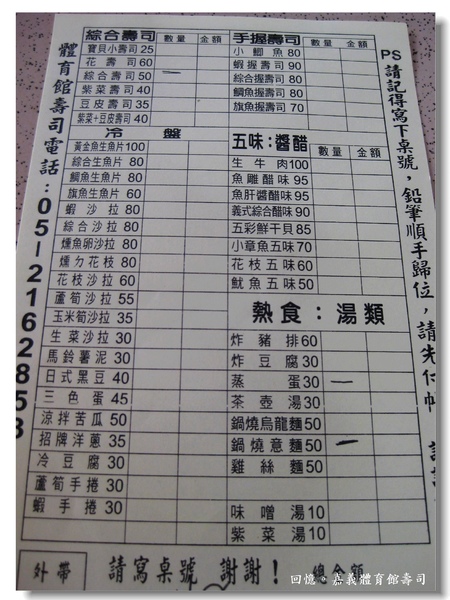 體育館壽司電話：05-2162853
綜合壽司 數量 金額
寶貝小壽司 25
花壽司 60
綜合壽司 50 一
紫菜壽司 40
豆皮壽司 35
紫菜+豆皮壽司 40
冷盤
黃金魚生魚片 100
綜合生魚片 80
鯛魚生魚片 80
旗魚生魚片 60
蝦沙拉 80
綜合沙拉 80
燻魚卵沙拉 80
燻ㄉ花枝 80
花枝沙拉 60
蘆筍沙拉 55
玉米筍沙拉 35
生菜沙拉 30
馬鈴薯泥 30
日式黑豆 40
三色蛋 45
涼拌苦瓜 50
招牌洋蔥 35
冷豆腐 30
蘆筍手捲 30
蝦手捲 30
手握壽司 數量 金額
小鯽魚 80
蝦握壽司 90
綜合握壽司 80
鯛魚握壽司 80
旗魚握壽司 70
五味：醬醋 數量 金額
生牛肉 100
魚雕醋味 95
魚肝醬醋味 95
義式綜合醋味 90
五彩鮮干貝 85
小章魚五味 70
花枝五味 60
魷魚五味 50
熱食：湯類
炸豬排 60
炸豆腐 30
蒸蛋 30 一
茶壺湯 30
鍋燒烏龍麵 50
鍋燒意麵 50 一
雞絲麵 50
味噌湯 10
紫菜湯 10
PS請記得寫下桌號，鉛筆順手歸位，請先付帳
外帶 請寫桌號 謝謝！ 總金額
回憶。嘉義體育館壽司